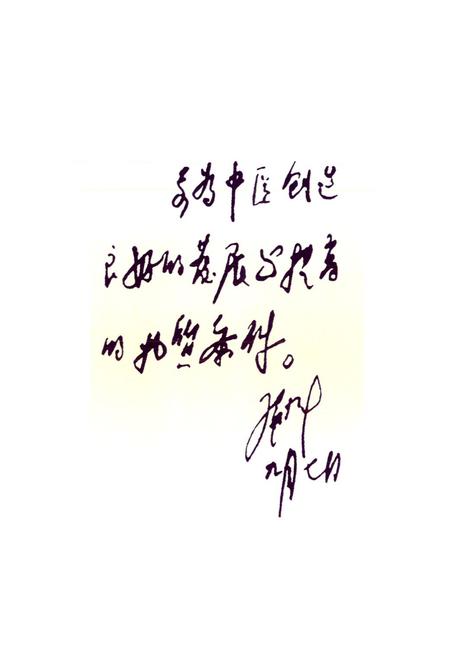 要为中医创造
良好的发展与提高
的物质条件。
邓小平
九月七日